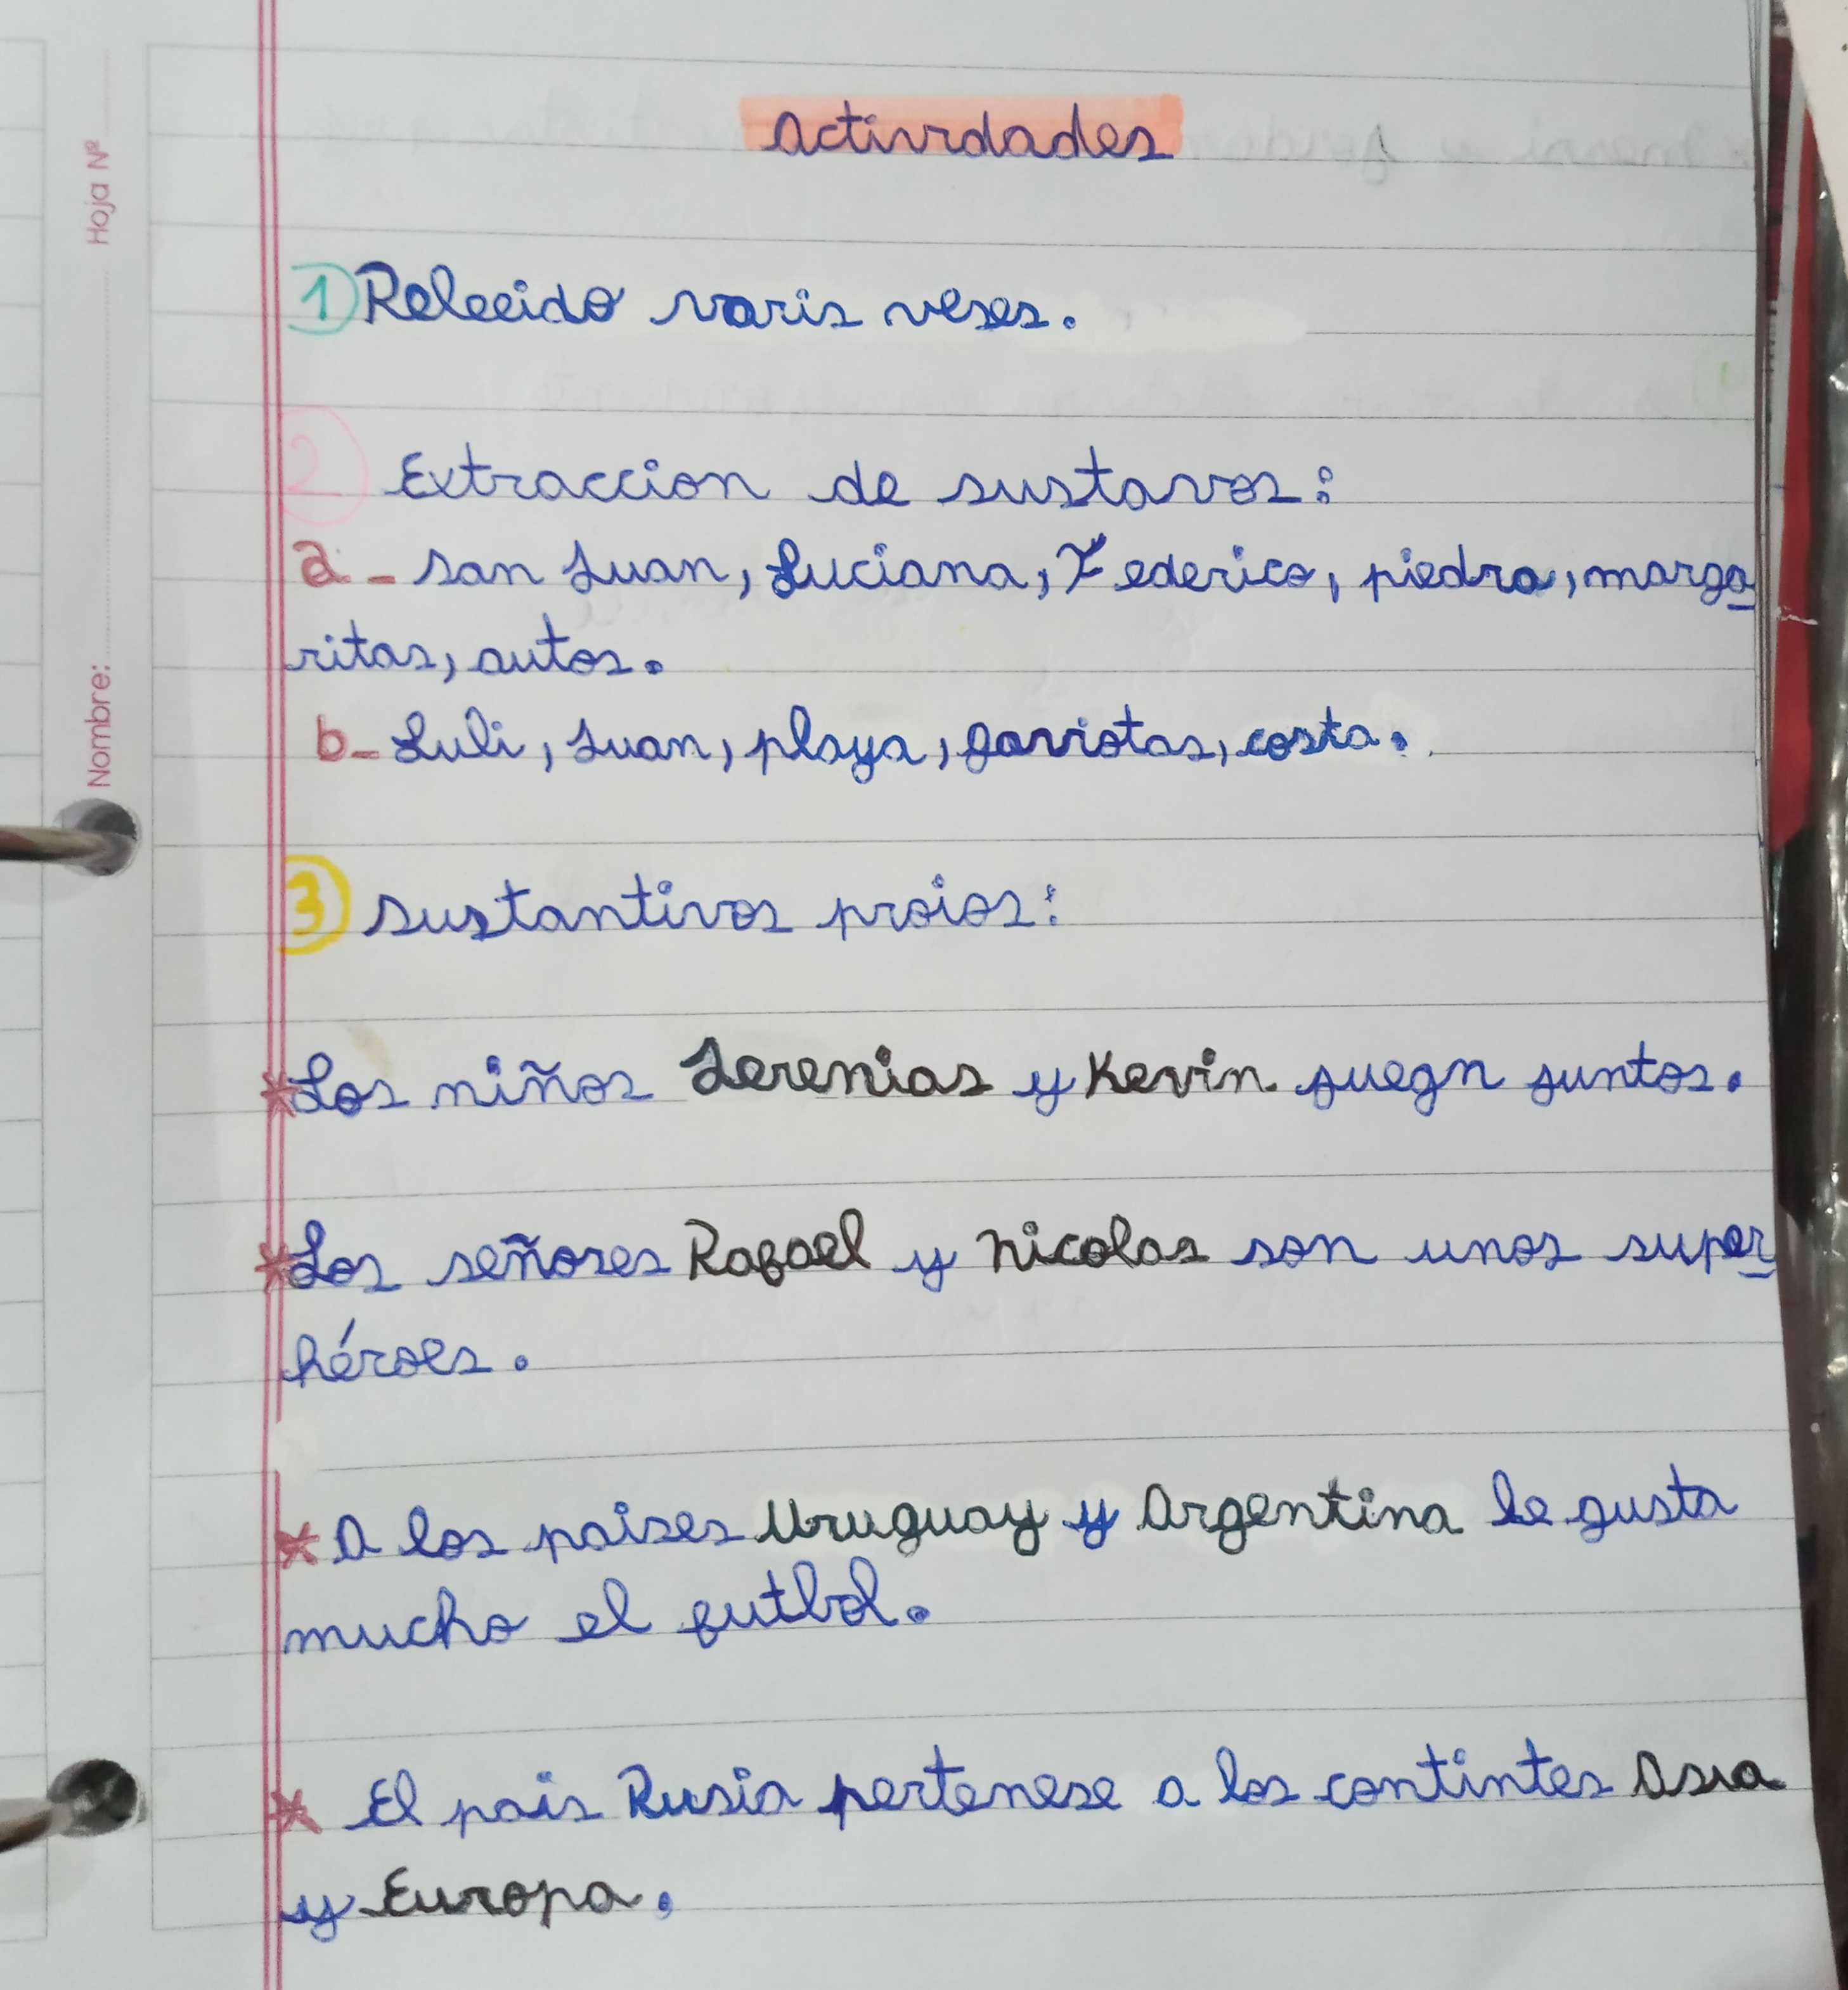 actividades
1 Releeido varis veses.
2 Extraccion de sustavos:
a- san Juan, Luciana, Federico, piedra, marga
ritas, autos.
b- Luli, Juan, playa, gaviotas, costa.
3 sustantivos proios:
* Los niños Jeremias y Kevin juegn juntos.
* Los señores Rafael y Nicolas son unos super
héroes.
* A los paises Uruguay y Argentina le gusta
mucho el futbol.
* El pais Rusia pertenese a los contintes Asia
y Europa.
Hoja Nº
Nombre: